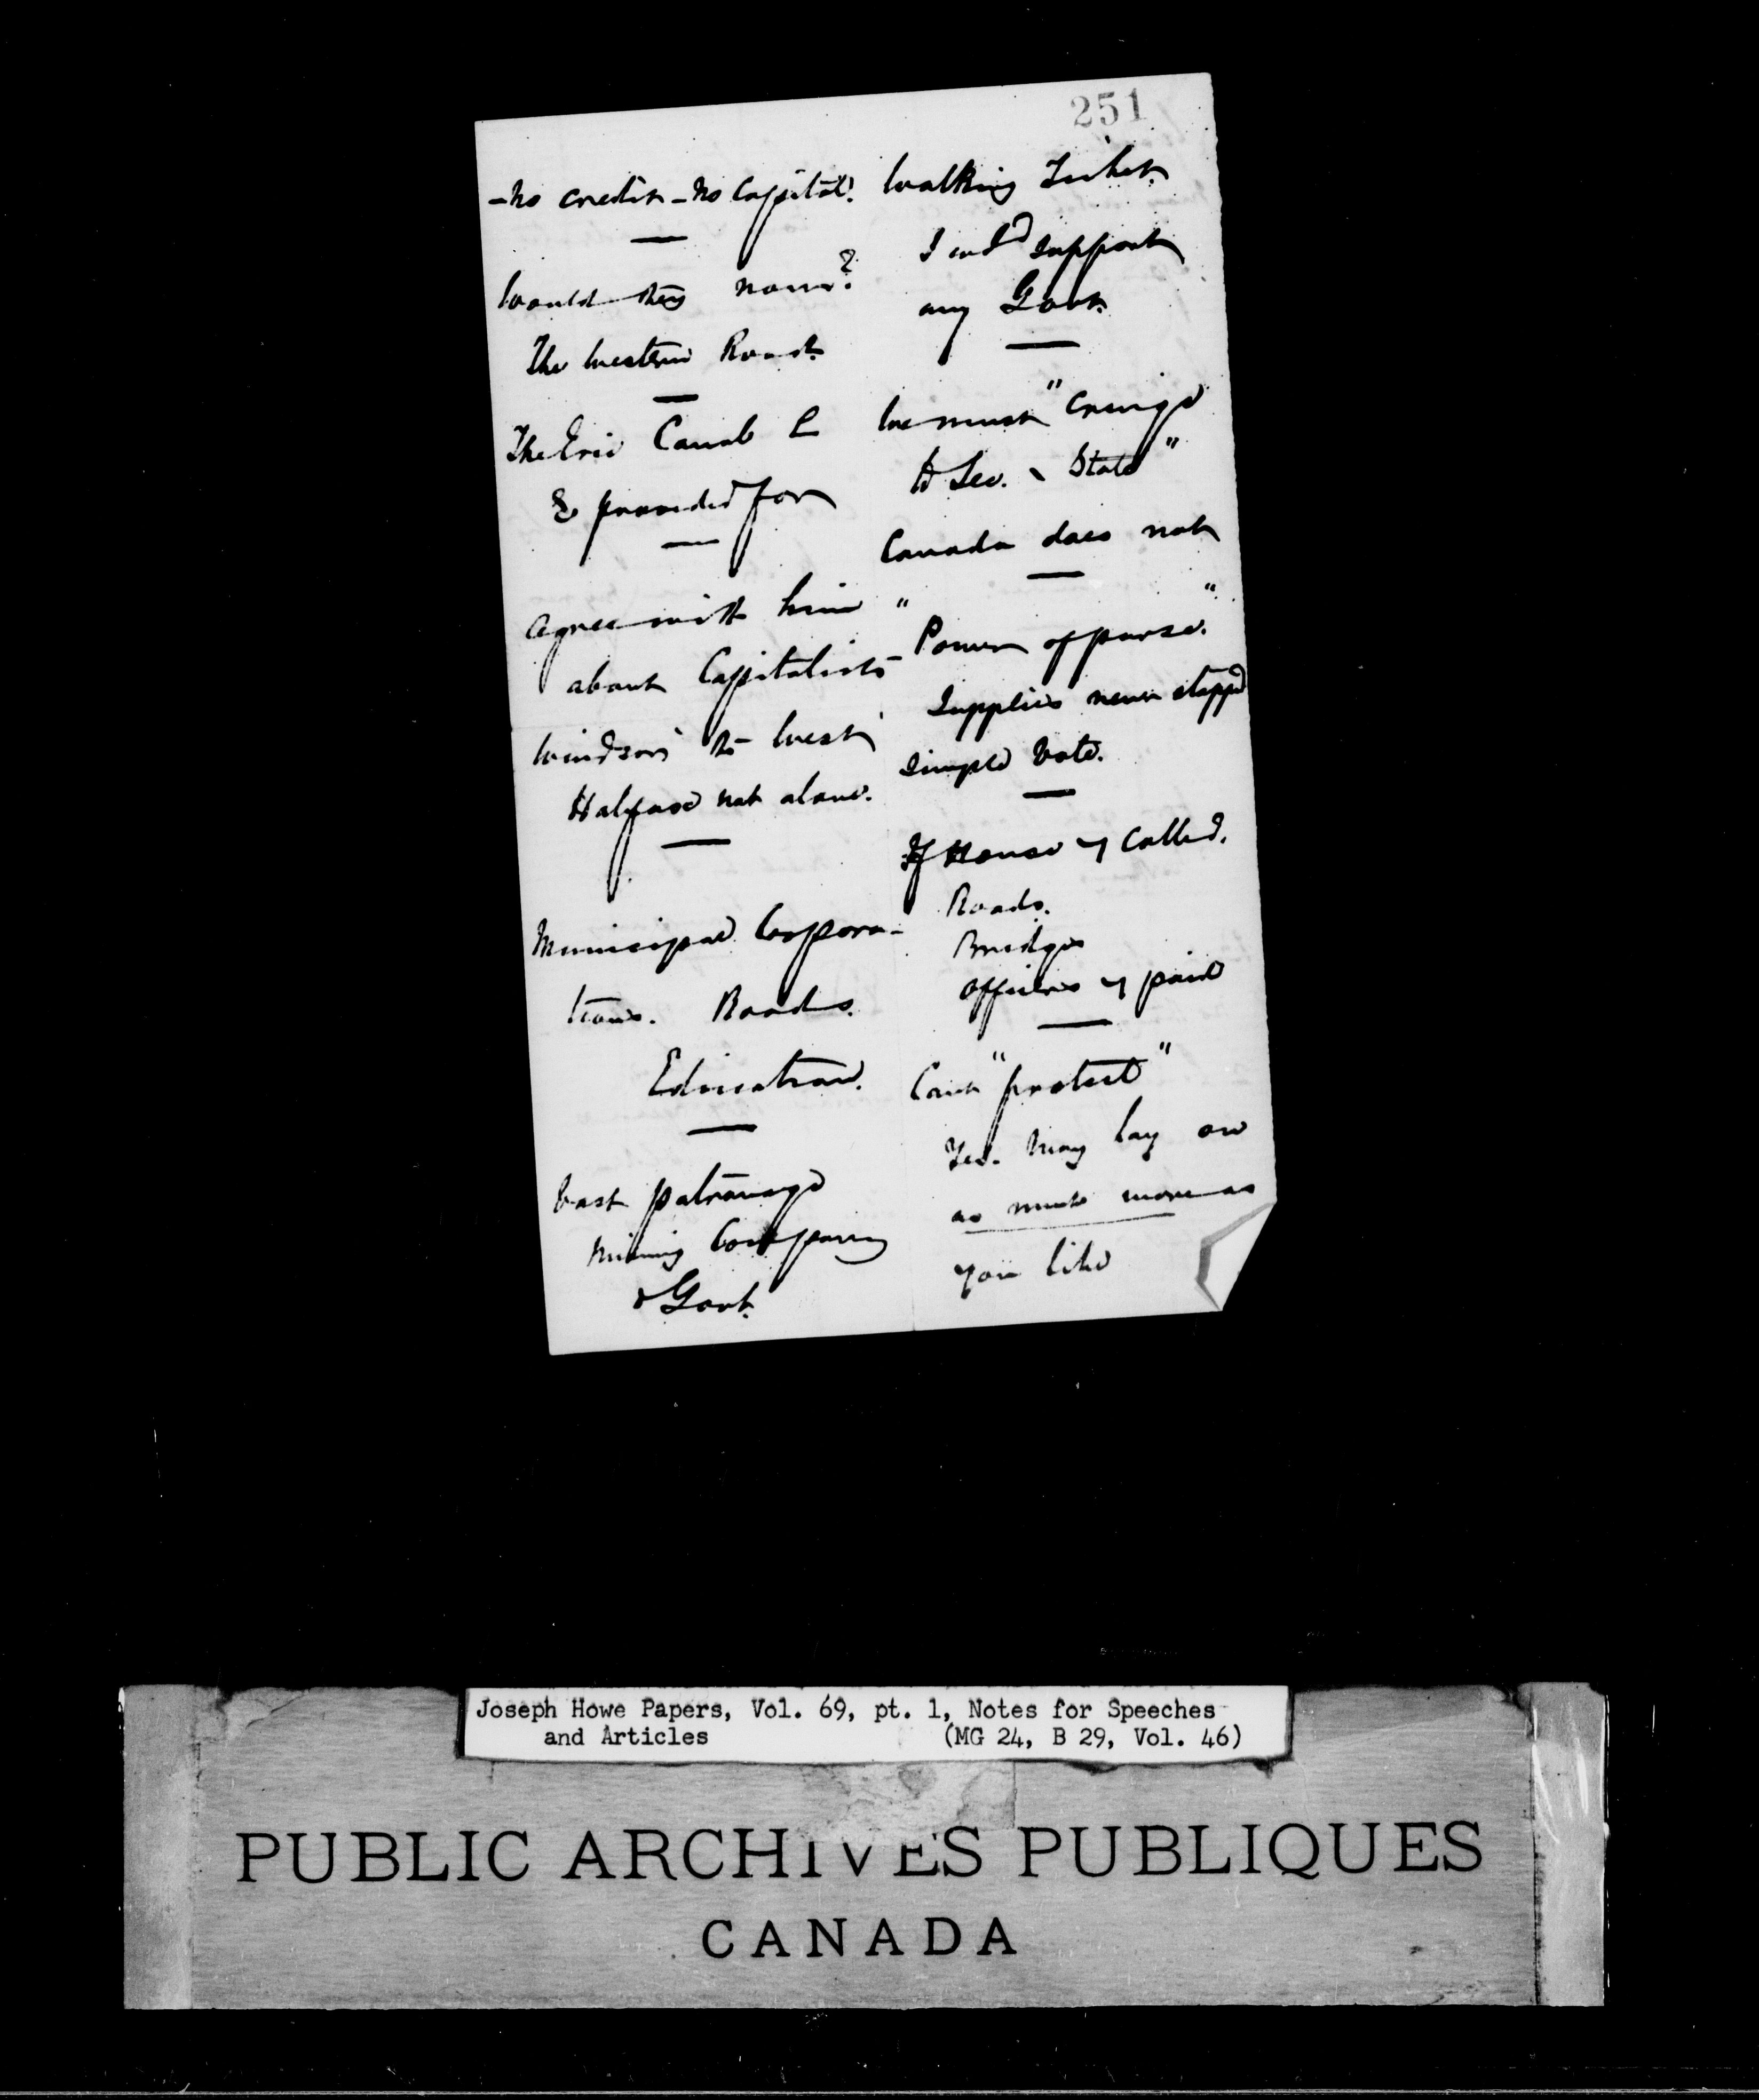 251
- No credit - No Capital.
Would they now?
The Western Road.
The Erie Canal
& provided for
Agree with him
about Capitalists -
Windsor to West
Halifax not alone.
Municipal Corpora-
tions. Roads.
Education.
Vast patronage
Mining Company
& Govt.
Walking Ticket.
I wd support
any Govt.
We must "cringe
to Sec. State"
Canada does not
"Power of purse."
Supplies never stoppd
Simple Vote.
If House called.
Roads.
Bridges
Officers paid
Cant "protect"
Yes. May lay on
as much more as
you like
Joseph Howe Papers, Vol. 69, pt. 1, Notes for Speeches
and Articles (MG 24, B 29, Vol. 46)
PUBLIC ARCHIVES PUBLIQUES
CANADA